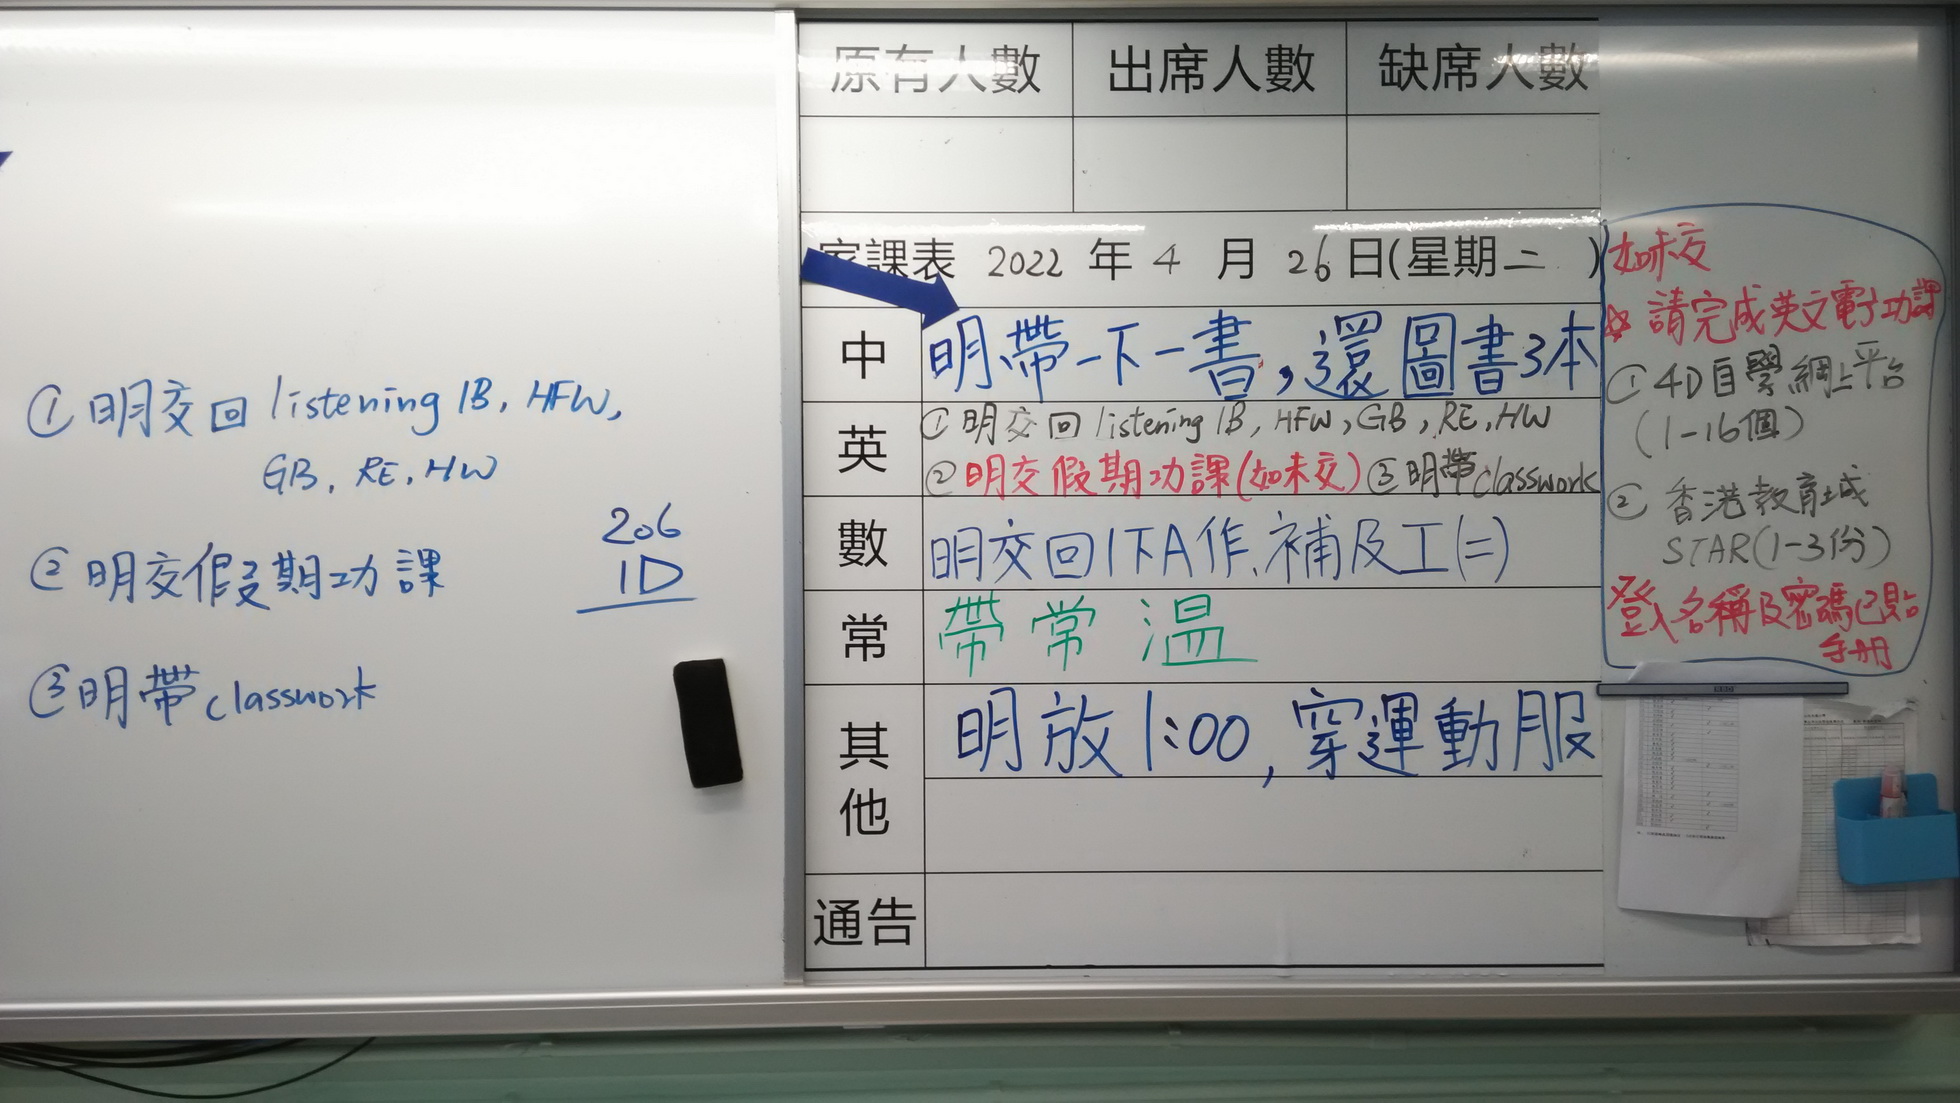 ①明交回 listening 1B, HFW,
GB, RE, HW
②明交假期功課
206
1D
③明帶classwork
原有人數 出席人數 缺席人數
家課表 2022 年 4 月 26 日(星期二 )
中 明帶一下一書,還圖書3本
英 ①明交回 listening 1B, HFW, GB, RE, HW
②明交假期功課(如未交)③明帶classwork
數 明交回1下A作、補及工(二)
常 帶常溫
其他 明放1:00,穿運動服
通告
如未交
☆請完成英文電子功課
①4D自學網上平台
(1-16個)
②香港教育城
STAR(1-3份)
登入名稱及密碼已貼
手冊